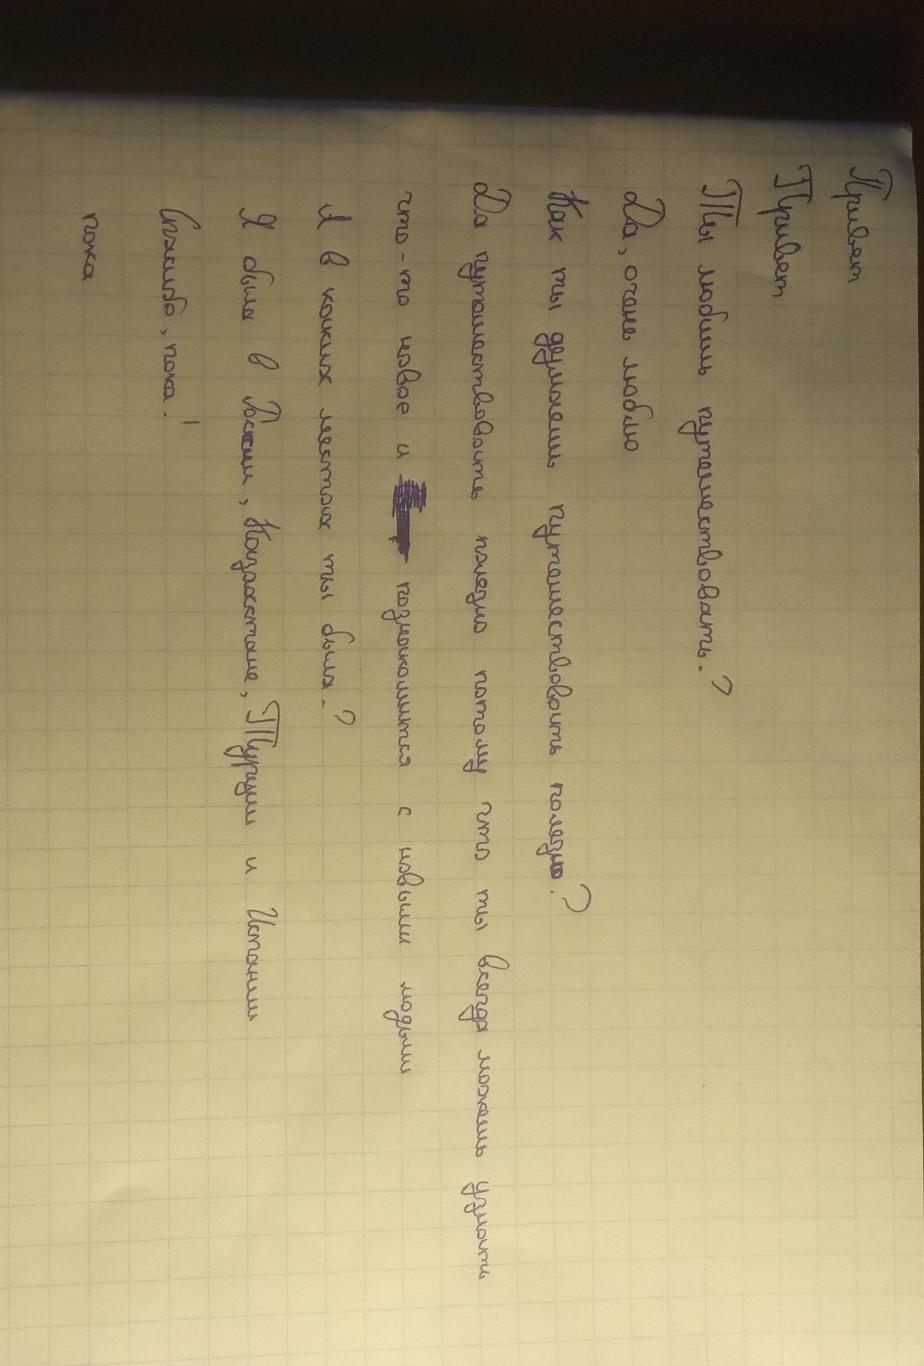 Привет
Привет
Ты любишь путешествовать?
Да, очень люблю
Как ты думаешь путешествовать полезно?
Да путешествовать полезно потому что ты всегда можешь узнать
что-то новое и познакомится с новыми людьми
А в каких местах ты была?
Я была в России, Казахстане, Турции и Испании
Спасибо, пока!
пока